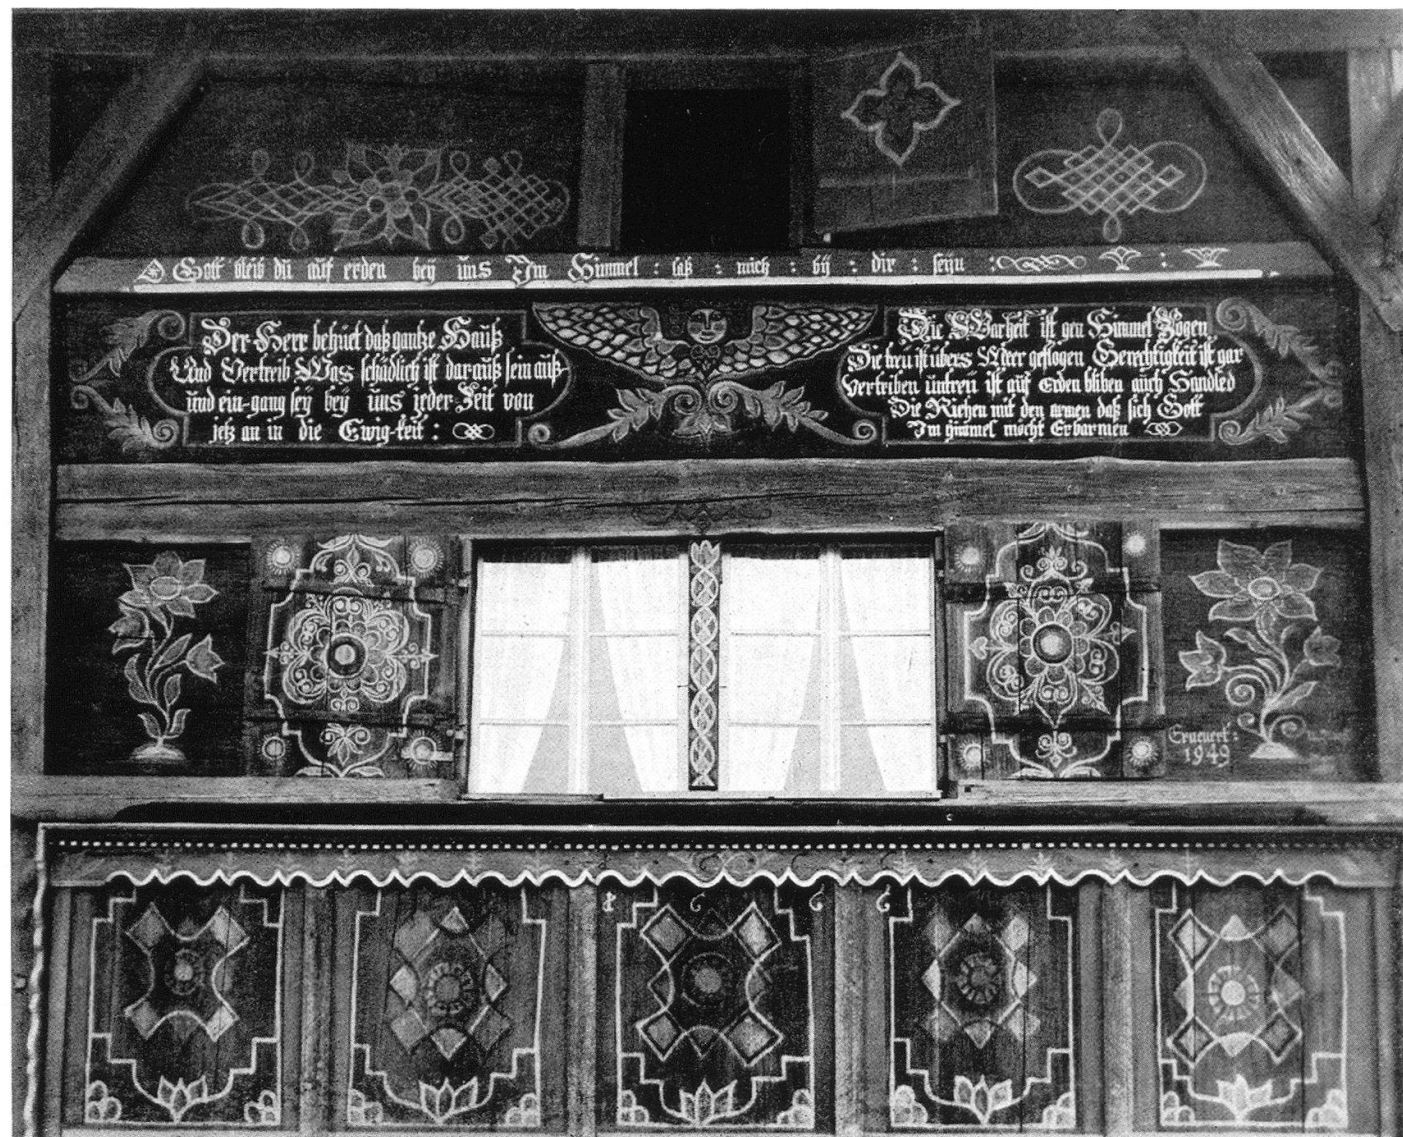 O Gott bleib dü auf erden beÿ üns Im Himmel : laß : mich : bÿ : dir : seÿn :
Der Herr behüet daß gantze Hauß
Und Vertreib Was schädlich ist darauß sein auß
und ein-gang seÿ beÿ üns jeder Zeit von
jetz an in die Ewig-keit :
Die Warheit ist gen Himmel Zogen
Die treü ist übers Meer geflogen Gerechtigkeit ist gar
vertriben üntreü ist auf Erden bliben auch Handled
Die Richen mit den armen daß sich Gott
Im himmel möcht Erbarmen
Erneuert :
1949